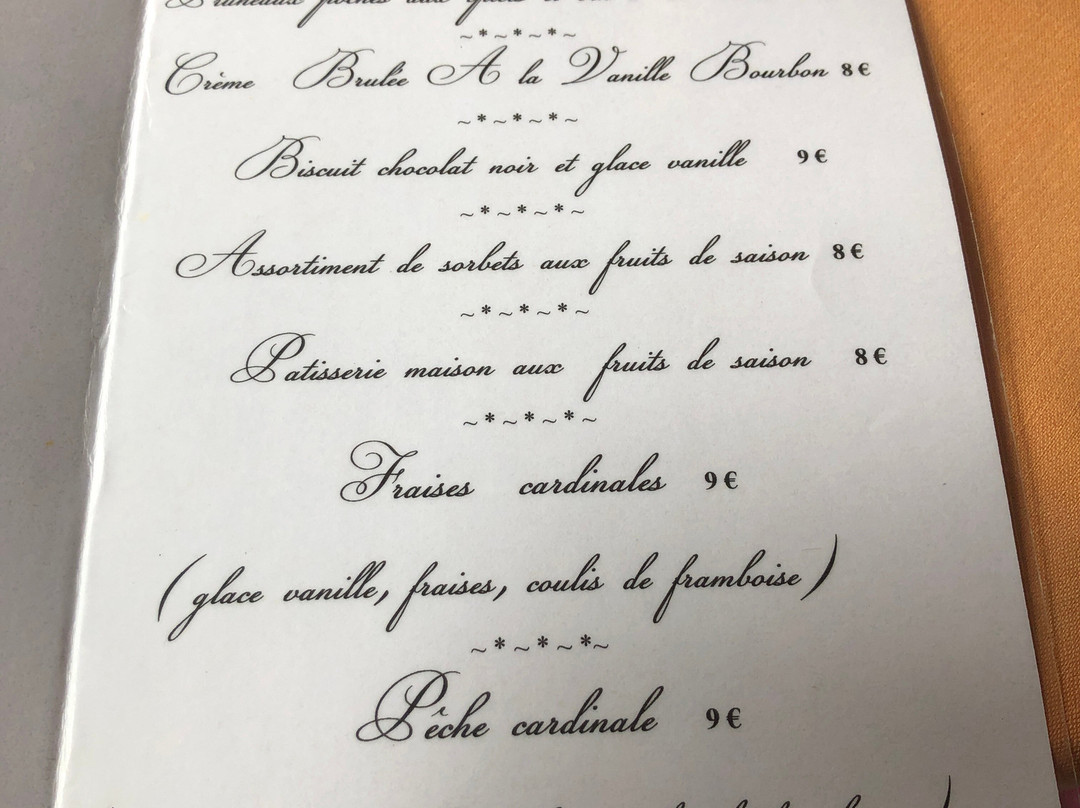 Pruneaux pochés aux
~*~*~*~
Crème Brulée A la Vanille Bourbon 8€
~*~*~*~
Biscuit chocolat noir et glace vanille 9€
~*~*~*~
Assortiment de sorbets aux fruits de saison 8€
~*~*~*~
Patisserie maison aux fruits de saison 8€
~*~*~*~
Fraises cardinales 9€
(glace vanille, fraises, coulis de framboise)
~*~*~*~
Pêche cardinale 9€